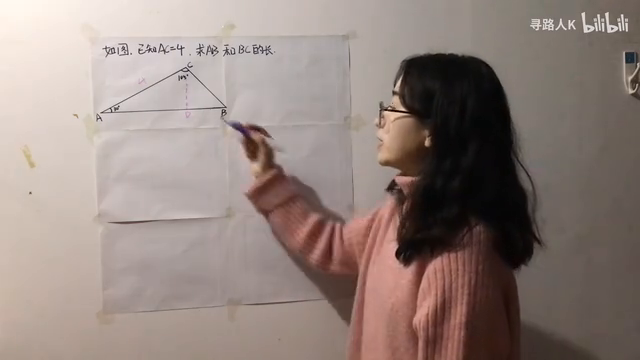 寻路人K bilibili
如图,已知AC=4,求AB和BC的长.
C
105°
4
30°
A
D
B